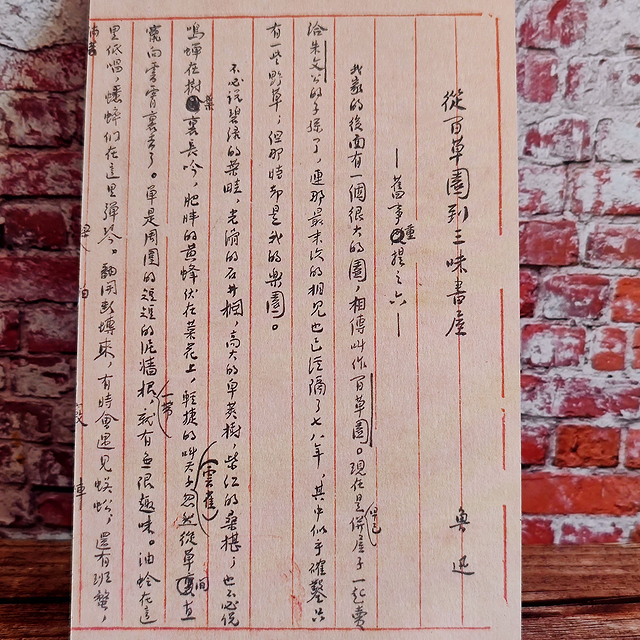 從百草園到三味書屋
魯迅
——舊事重提之六——
我家的後面有一個很大的園，相傳叫作百草園。現在是早已併屋子一起賣
給朱文公的子孫了，連那最末次的相見也已經隔了七八年，其中似乎確鑿只
有一些野草，但那時卻是我的樂園。
不必說碧綠的菜畦，光滑的石井欄，高大的皁莢樹，紫紅的桑椹，也不必說
鳴蟬在樹葉裏長吟，肥胖的黃蜂伏在菜花上，輕捷的叫天子（雲雀）忽然從草間直
竄向雲霄裏去了。單是周圍的短短的泥牆根一帶，就有無限趣味。油蛉在這
里低唱，蟋蟀們在這里彈琴。翻開斷塼來，有時會遇見蜈蚣，還有斑蝥，